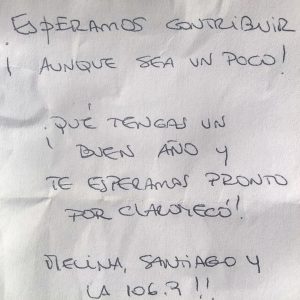 ESPERAMOS CONTRIBUIR
¡AUNQUE SEA UN POCO!
¡QUÉ TENGAS UN
BUEN AÑO Y
TE ESPERAMOS PRONTO
POR CLAROMECÓ!
MELINA, SANTIAGO Y
LA 106.3!!